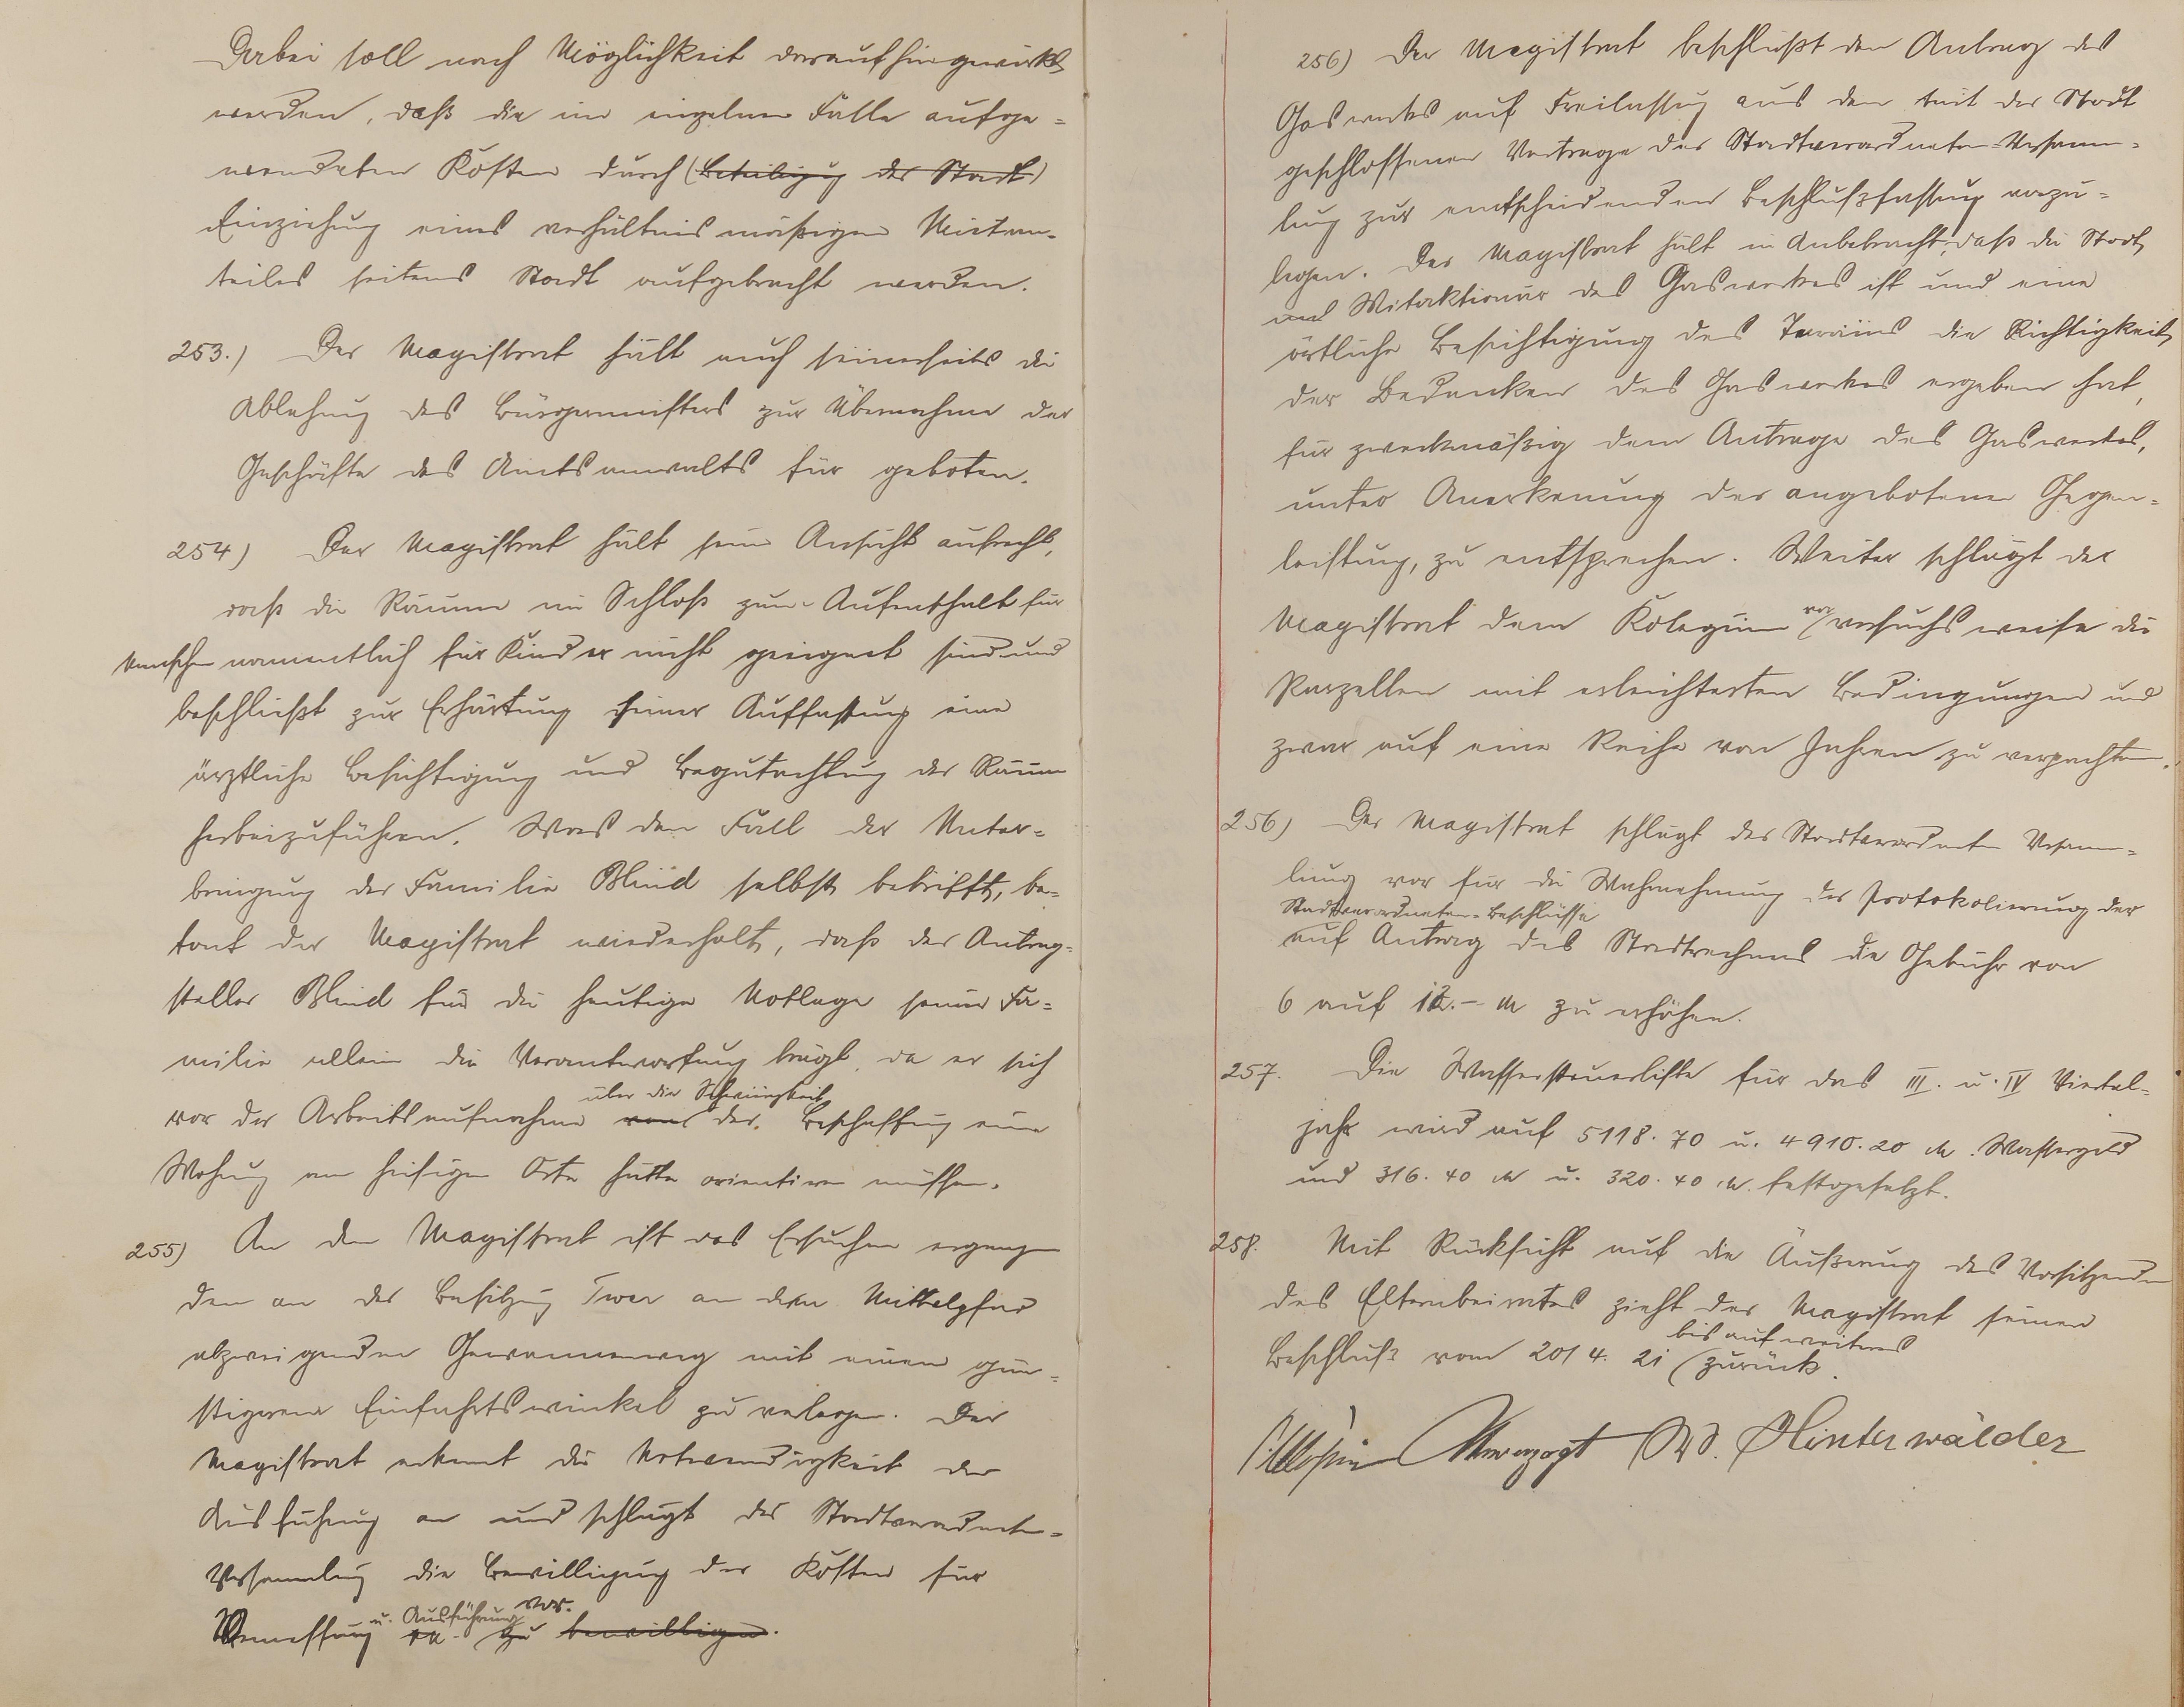 Dabei soll nach Möglichkeit darauf hingewirkt
werden, daß die im einzelnen Falle aufge=
wendeten Kosten durch (Beteiligung der Stadt)
Einziehung eines verhältnismäßigen Mietan-
teiles seitens Stadt aufgebracht werden.
253.) Der Magistrat hält auch seinerseits die
Ablehnung des Bürgermeisters zur Übernahme der
Geschäfte des Amtsanwalts für geboten.
254) Der Magistrat hält seine Ansicht aufrecht,
daß die Räume im Schloß zum Aufenthalt für
Menschen namentlich für Kinder nicht geeignet sind und
beschließt zur Erhärtung seiner Auffassung eine
ärztliche Besichtigung und Begutachtung der Räume
herbeizuführen. Was den Fall der Unter=
bringung der Familie Blind selbst betrifft, be-
tont der Magistrat wiederholt, daß der Antrag=
steller Blind für die heutige Notlage seiner Fa=
milie allein die Verantwortung trägt, da er sich
über die Schwierigkeit
vor der Arbeitsaufnahme von der Beschaffung einer
Wohnung am hiesigen Orte hätte orientieren müssen.
255) An den Magistrat ist das Ersuchen ergangen
den an der Besitzung Twer an dem Mittelpfad
abzweigenden Gewannenweg mit einem gün=
stigeren Einfahrtswinkel zu verlegen. Der
Magistrat erkennt die Notwendigkeit der
Ausführung an und schlägt der Stadtverordneten=
Versammlung die Bewilligung der Kosten für
u. Ausführung vor.
Vermessung zu bewilligen.
256) Der Magistrat beschließt den Antrag des
Gaswerks auf Freilassung aus dem mit der Stadt
geschlossenen Vertrage der Stadtverordneten-Versamm=
lung zur entscheidenden Beschlußfassung vorzu=
legen. Der Magistrat hält in Anbetracht, daß die Stadt
Mitaktionär des Gaswerkes ist und eine
örtliche Besichtigung des Terrains die Richtigkeit
der Bedenken des Gaswerkes ergeben hat,
für zweckmäßig dem Antrage des Gaswerkes,
unter Anerkennung der angebotenen Gegen=
leistung, zu entsprechen. Weiter schlägt der
Magistrat dem Kolegium vor versuchsweise die
Parzellen mit erleichterten Bedingungen und
zwar auf eine Reihe von Jahren zu verpachten.
256) Der Magistrat schlägt der Stadtverordneten Versamm=
lung vor für die Wahrnehmung der Protokolierung der
Stadtverordneten-Beschlüsse
auf Antrag des Stadtrechners die Gebühr von
6 auf 12.- M zu erhöhen.
257. Die Wassersteuerliste für das III. u. IV Viertel-
jahr wird auf 5118.70 u. 4910.20 M. Wassergeld
und 316.40 M u. 320.40 M. festgesetzt.
258. Mit Rücksicht auf die Äußerung des Vorsitzenden
des Elternbeirates zieht der Magistrat seinen
bis auf weiteres
Beschluß vom 20/4. 21 zurück.
Unverzagt W. Hinterwälder